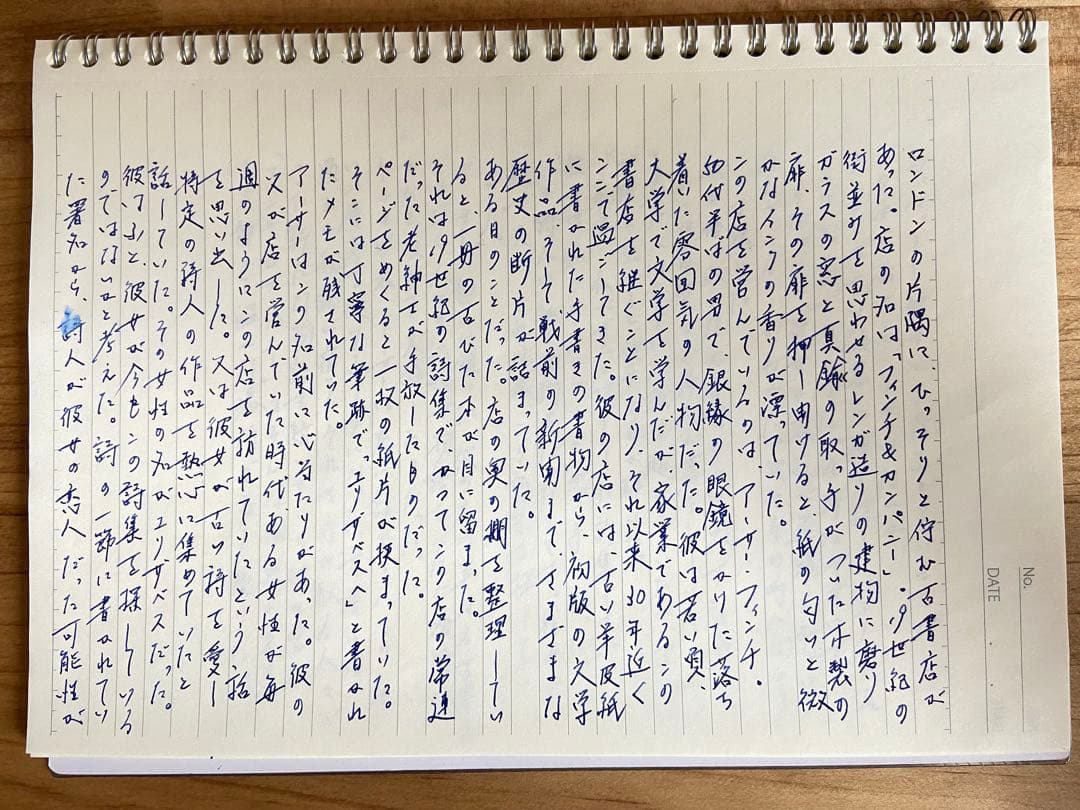 No.
DATE
ロンドンの片隅に、ひっそりと佇む古書店が
あった。店の名は「フィンチ&カンパニー」。19世紀の
街並みを思わせるレンガ造りの建物に磨り
ガラスの窓と真鍮の取っ手がついた木製の
扉、その扉を押し開けると、紙の匂いと微
かなインクの香りが漂っていた。
この店を営んでいるのは、アーサー・フィンチ。
50代半ばの男で、銀縁の眼鏡をかけた落ち
着いた雰囲気の人物だった。彼は若い頃、
大学で文学を学んだが、家業であるこの
書店を継ぐことになり、それ以来30年近く
ここで過ごしてきた。彼の店には、古い羊皮紙
に書かれた手書きの書物から、初版の文学
作品、そして戦前の新聞まで、さまざまな
歴史の断片が詰まっていた。
ある日のことだった。店の奥の棚を整理してい
ると、一冊の古びた本が目に留まった。
それは19世紀の詩集で、かつてこの店の常連
だった老紳士が手放したものだった。
ページをめくると一枚の紙片が挟まっていた。
そこには丁寧な筆跡で「エリザベスへ」と書かれ
たメモが残されていた。
アーサーはこの名前に心当たりがあった。彼の
父が店を営んでいた時代、ある女性が毎
週のようにこの店を訪れていたという話
を思い出した。父は彼女が古い詩を愛し
特定の詩人の作品を熱心に集めていたと
話していた。その女性の名がエリザベスだった。
彼はふと、彼女が今もこの詩集を探している
のではないかと考えた。詩の一節に書かれてい
た署名から、詩人が彼女の恋人だった可能性が